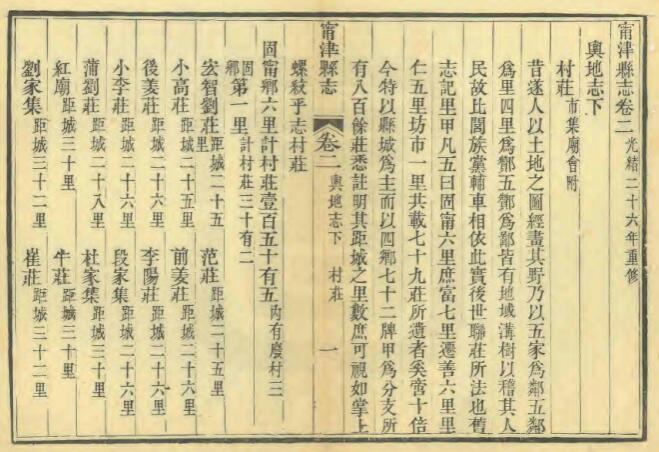 甯津縣志卷二 光緒二十六年重修
輿地志下
村莊 市集廟會附
昔遂人以土地之圖經畫其野乃以五家爲鄰五鄰
爲里四里爲酇五酇爲鄙皆有地域溝樹以稽其人
民故比閭族黨輔車相依此實後世聯莊所法也舊
志記里甲凡五曰固甯六里庶富七里遷善六里里
仁五里坊市一里共載七十九莊所遺者奚啻十倍
今特以縣城爲主而以四鄉七十二牌甲爲分支所
有八百餘莊悉註明其距城之里數庶可視如掌上
甯津縣志 卷二 輿地志下 村莊 一
螺紋乎志村莊
固甯鄉六里計村莊壹百五十有五 內有廢村三
固鄉第一里 計村莊三十有二
宏智劉莊 距城二十五里 范莊 距城二十五里
小高莊 距城二十五里 前姜莊 距城二十六里
後姜莊 距城二十六里 李陽莊 距城二十六里
小李莊 距城二十六里 段家集 距城二十六里
蒲劉莊 距城二十八里 杜家集 距城三十里
紅廟 距城三十里 牛莊 距城三十里
劉家集 距城三十二里 崔莊 距城三十二里